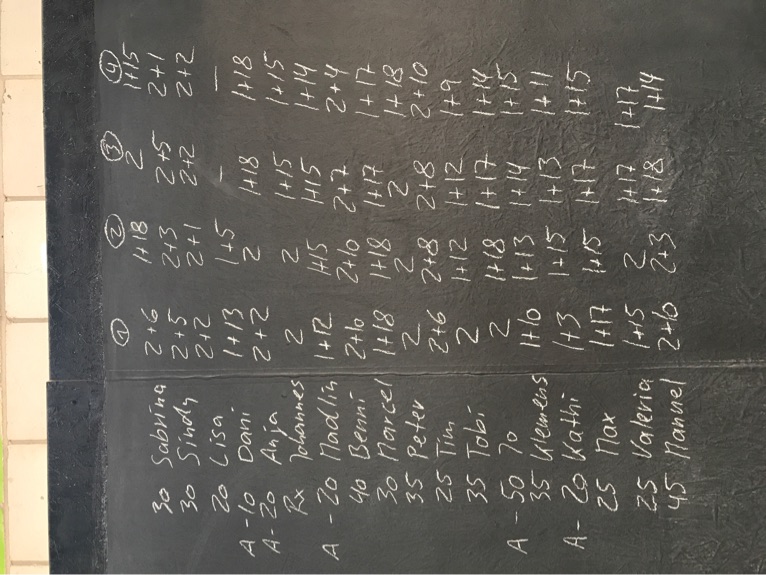 ① ② ③ ④
30 Sabrina 2+6 1+18 2 1+15
30 Sindy 2+5 2+3 2+5 2+1
20 Lisa 2+2 2+1 2+2 2+2
A - 10 Dani 1+13 1+5 – –
A - 20 Anja 2+2 2 1+18 1+18
Rx Johannes 2 2 1+15 1+15
A - 20 Madlin 1+12 1+15 1+15 1+14
40 Benni 2+10 2+10 2+7 2+4
30 Marcel 1+18 1+18 1+17 1+17
35 Peter 2 2 2 1+18
25 Tim 2+6 2+8 2+8 2+10
35 Tobi 2 1+12 1+12 1+9
A - 50 Jo 2 1+18 1+17 1+14
35 Klemens 1+10 1+13 1+14 1+15
A - 20 Kathi 1+3 1+15 1+13 1+11
25 Max 1+17 1+15 1+17 1+15
25 Valeria 1+15 2 1+17 1+17
45 Manuel 2+10 2+3 1+8 1+14